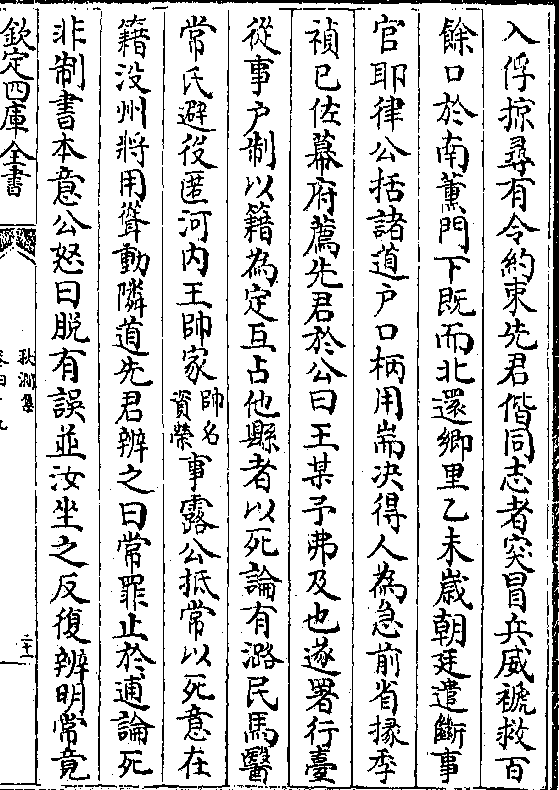 入俘掠尋有令約束先君偕同志者突冒兵威褫救百
餘口於南薰門下既而北還鄉里乙未歲朝廷遣斷事
官耶律公括諸道户口柄用耑决得人為急前省掾季
禎已佐幕府薦先君於公曰王某予弗及也遂署行臺
從事户制以籍為定互占他縣者以死論有潞民馬醫
常氏避役匿河内王帥家帥名資榮事露公抵常以死意在
籍没州將用聳動隣道先君辨之曰常罪止於逋論死
非制書本意公怒曰脱有誤並汝坐之反復辨明常竟
欽定四庫全書
秋澗集
卷四十九
二十